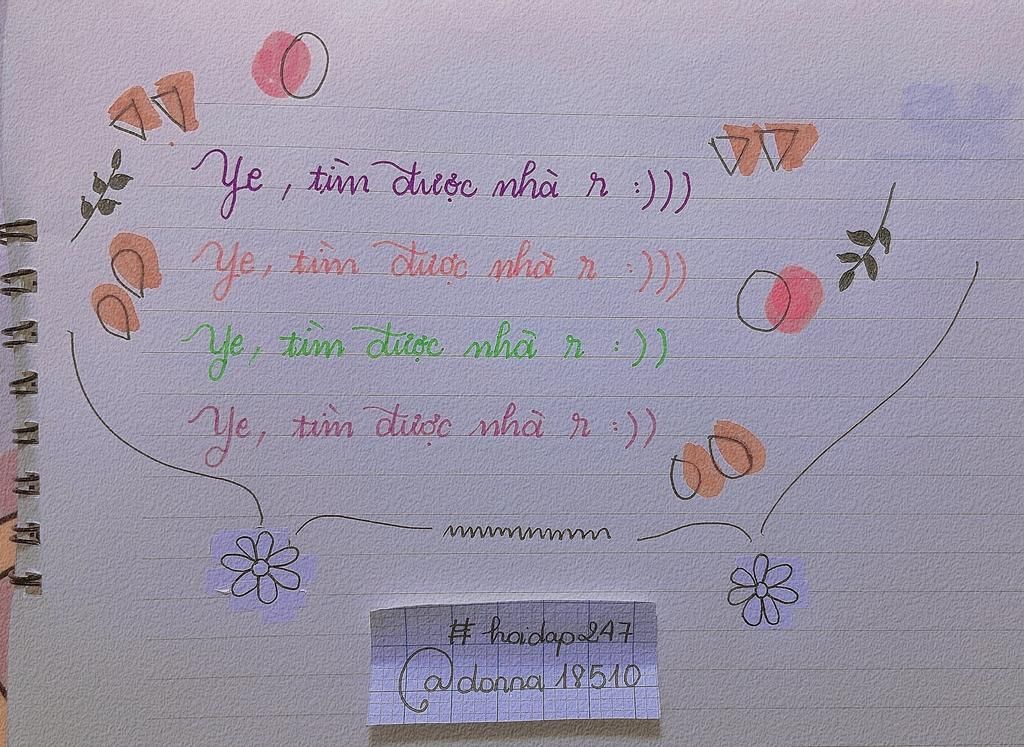 Ye, tìm được nhà r :)))
Ye, tìm được nhà r :)))
Ye, tìm được nhà r :))
Ye, tìm được nhà r :))
# hoidap247
@donna18510